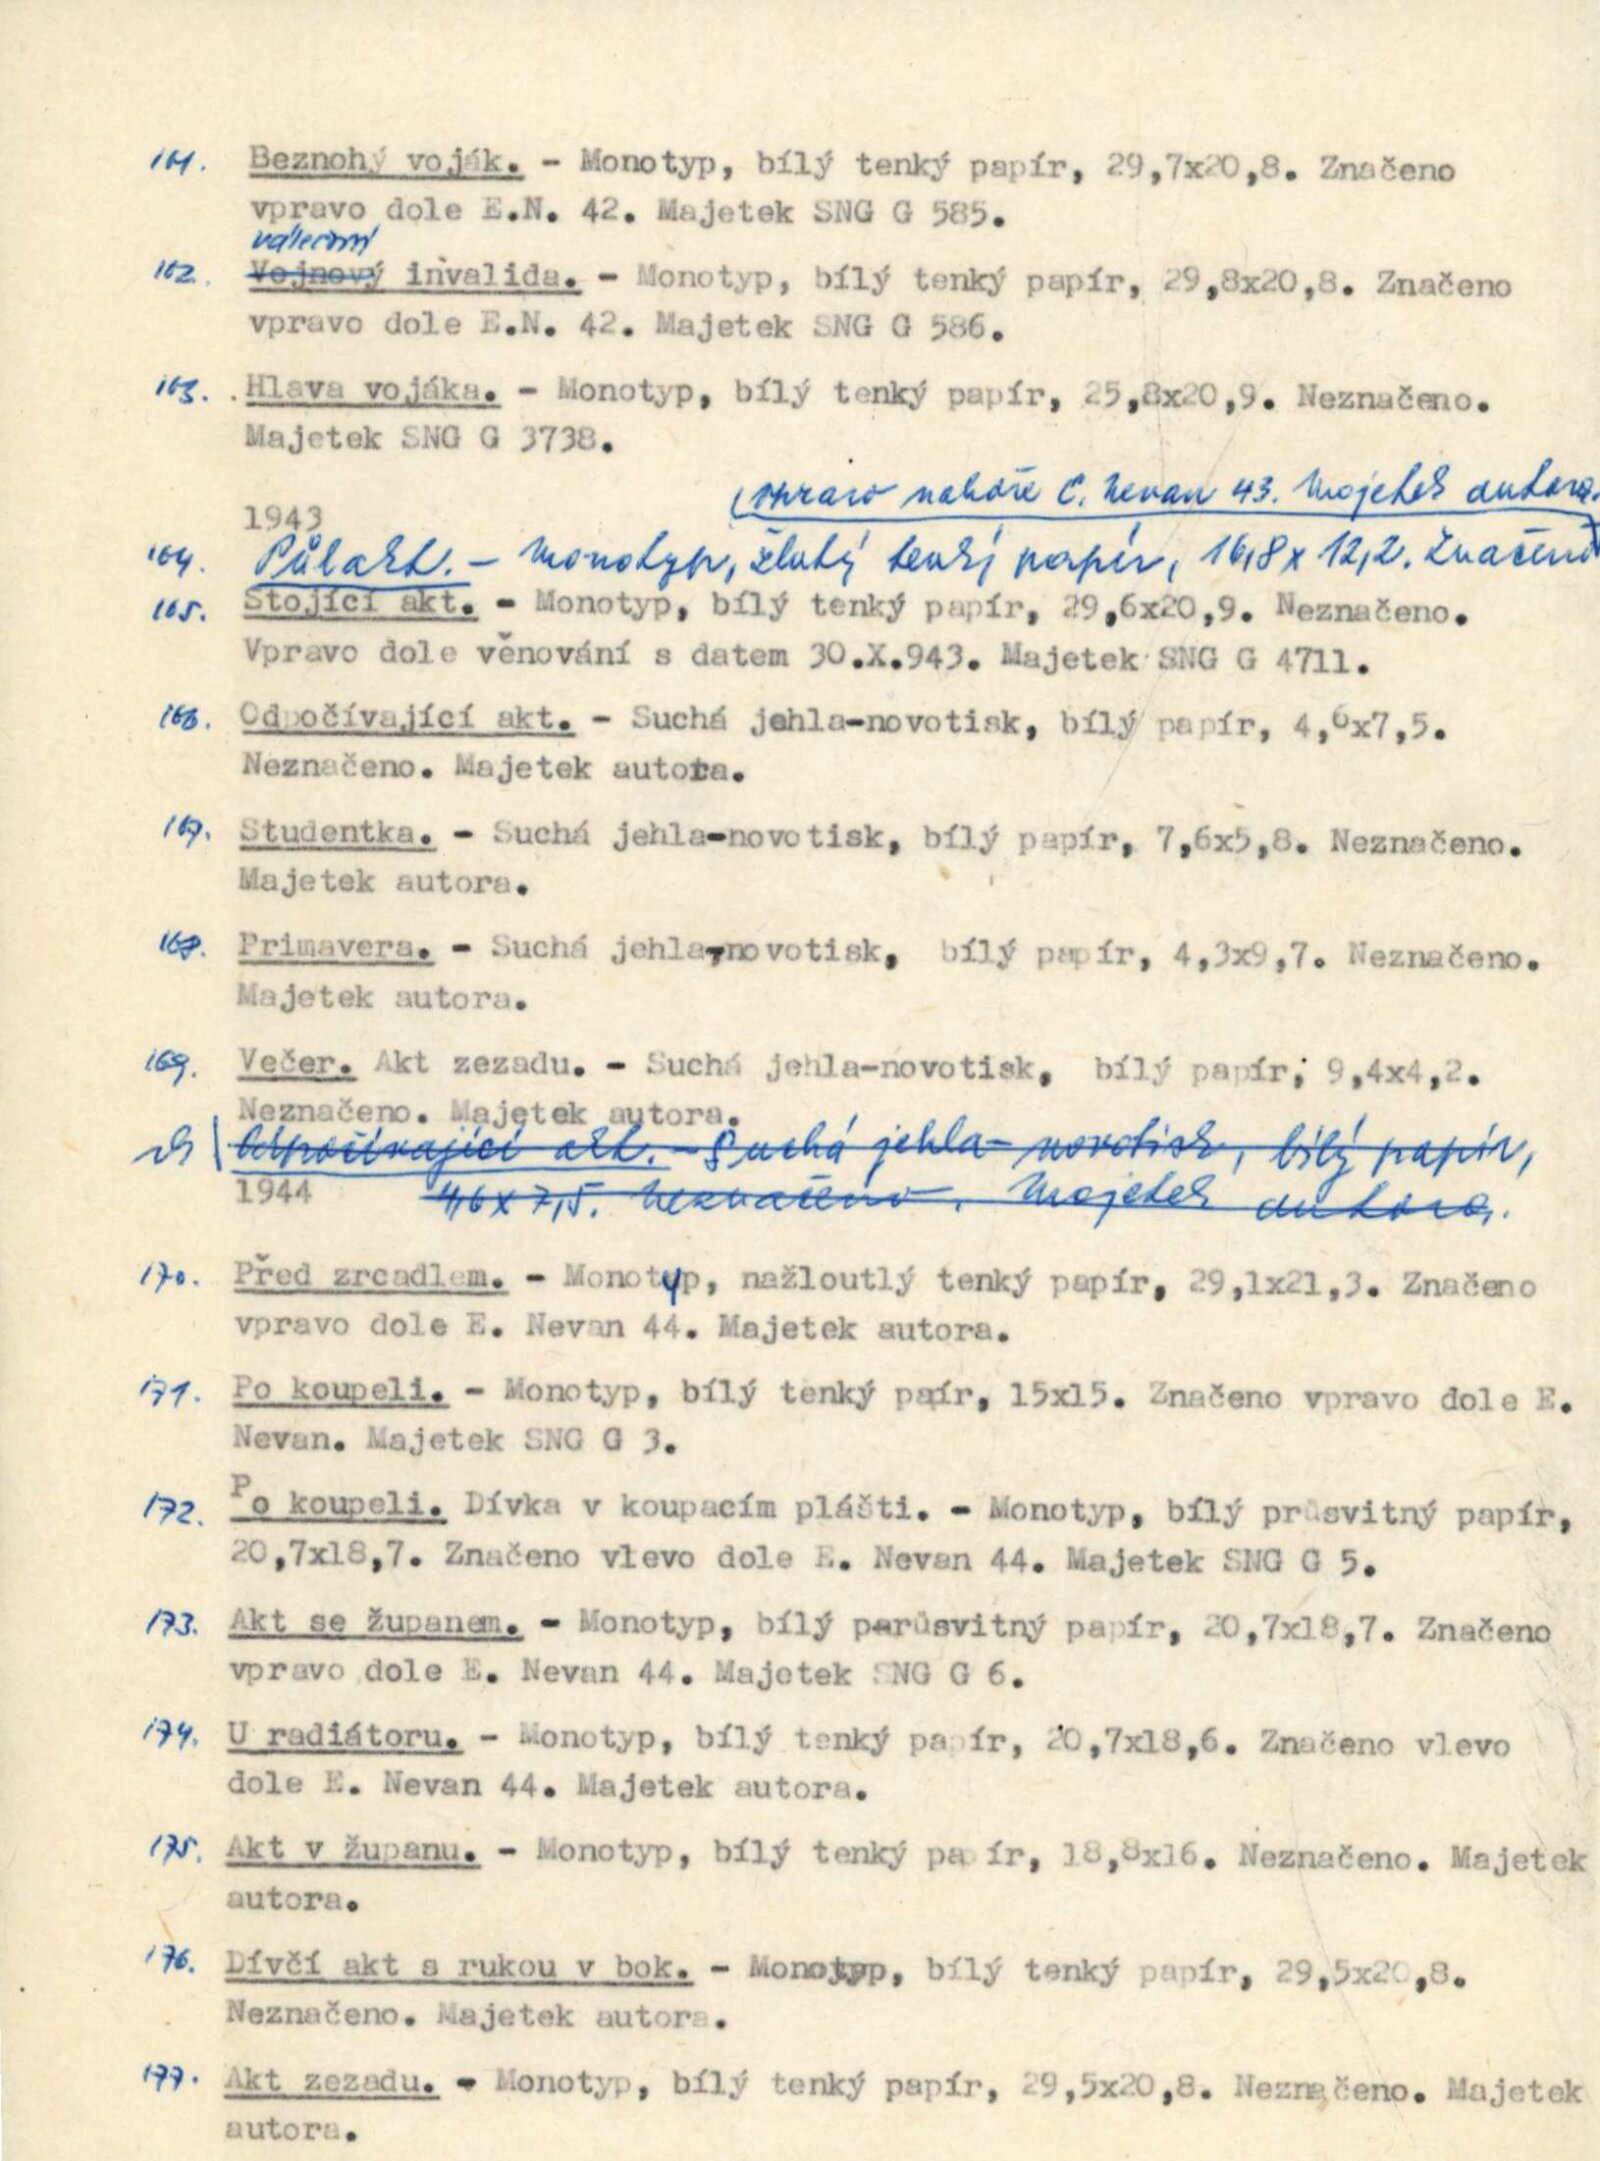 161. Beznohý voják. - Monotyp, bílý tenký papír, 29,7x20,8. Značeno
vpravo dole E.N. 42. Majetek SNG G 585.
válečný
162. Vojnový invalida. - Monotyp, bílý tenký papír, 29,8x20,8. Značeno
vpravo dole E.N. 42. Majetek SNG G 586.
163. Hlava vojáka. - Monotyp, bílý tenký papír, 25,8x20,9. Neznačeno.
Majetek SNG G 3738.
vpravo nahoře E. Nevan 43. Majetek autora.
1943
164. Půlakt. - Monotyp, žlutý tenký papír, 16,8 x 12,2. Značeno
165. Stojící akt. - Monotyp, bílý tenký papír, 29,6x20,9. Neznačeno.
Vpravo dole věnování s datem 30.X.943. Majetek SNG G 4711.
166. Odpočívající akt. - Suchá jehla-novotisk, bílý papír, 4,6x7,5.
Neznačeno. Majetek autora.
167. Studentka. - Suchá jehla-novotisk, bílý papír, 7,6x5,8. Neznačeno.
Majetek autora.
168. Primavera. - Suchá jehla-novotisk, bílý papír, 4,3x9,7. Neznačeno.
Majetek autora.
169. Večer. Akt zezadu. - Suchá jehla-novotisk, bílý papír; 9,4x4,2.
Neznačeno. Majetek autora.
Odpočívající akt. - Suchá jehla - novotisk, bílý papír,
1944 4,6 x 7,5. Neznačeno. Majetek autora.
170. Před zrcadlem. - Monotyp, nažloutlý tenký papír, 29,1x21,3. Značeno
vpravo dole E. Nevan 44. Majetek autora.
171. Po koupeli. - Monotyp, bílý tenký paír, 15x15. Značeno vpravo dole E.
Nevan. Majetek SNG G 3.
172. Po koupeli. Dívka v koupacím plášti. - Monotyp, bílý průsvitný papír,
20,7x18,7. Značeno vlevo dole E. Nevan 44. Majetek SNG G 5.
173. Akt se županem. - Monotyp, bílý parůsvitný papír, 20,7x18,7. Značeno
vpravo dole E. Nevan 44. Majetek SNG G 6.
174. U radiátoru. - Monotyp, bílý tenký papír, 20,7x18,6. Značeno vlevo
dole E. Nevan 44. Majetek autora.
175. Akt v županu. - Monotyp, bílý tenký papír, 18,8x16. Neznačeno. Majetek
autora.
176. Dívčí akt s rukou v bok. - Monotyp, bílý tenký papír, 29,5x20,8.
Neznačeno. Majetek autora.
177. Akt zezadu. - Monotyp, bílý tenký papír, 29,5x20,8. Neznačeno. Majetek
autora.